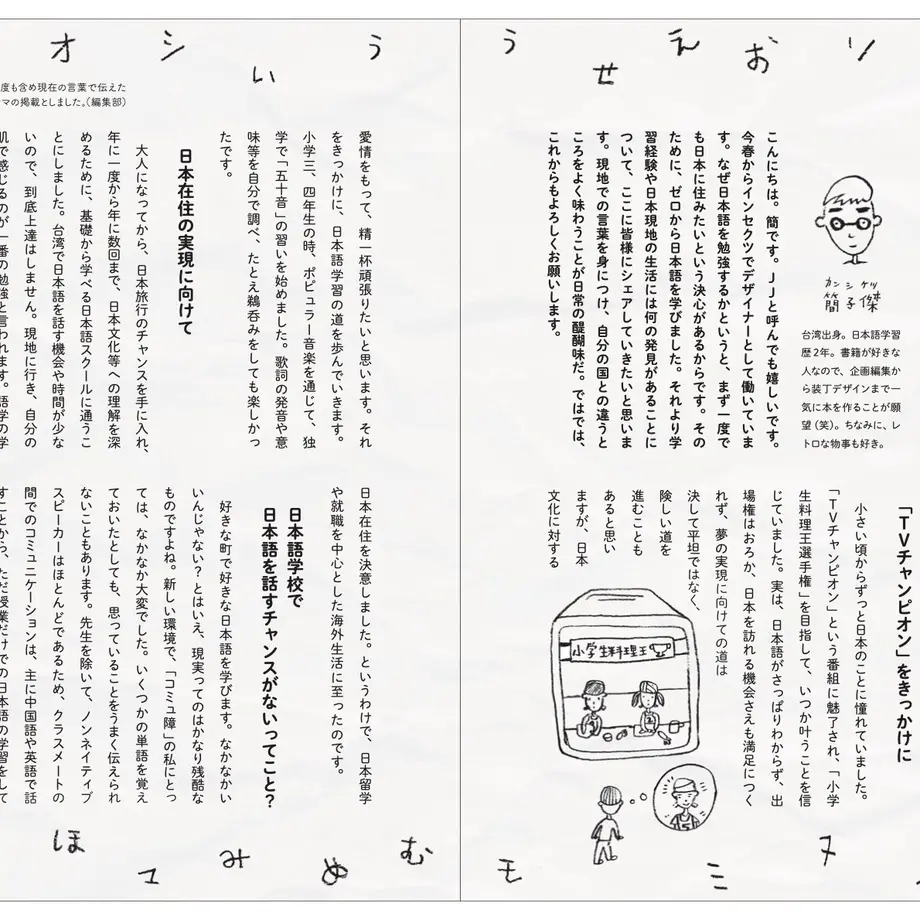 う
せ
え
お
カン シ ケツ
簡子傑
台湾出身。日本語学習
歴2年。書籍が好きな
人なので、企画編集か
ら装丁デザインまで一
気に本を作ることが願
望(笑)。ちなみに、レ
トロな物事も好き。
こんにちは。簡です。JJと呼んでも嬉しいです。
今春からインセクツでデザイナーとして働いていま
す。なぜ日本語を勉強するかというと、まず一度で
も日本に住みたいという決心があるからです。その
ために、ゼロから日本語を学びました。それより学
習経験や日本現地の生活には何の発見があることに
ついて、ここに皆様にシェアしていきたいと思いま
す。現地での言葉を身につけ、自分の国との違うと
ころをよく味わうことが日常の醍醐味だ。ではでは、
これからもよろしくお願いします。
「TVチャンピオン」をきっかけに
小さい頃からずっと日本のことに憧れていました。
「TVチャンピオン」という番組に魅了され、「小学
生料理王選手権」を目指して、いつか叶うことを信
じていました。実は、日本語がさっぱりわからず、出
場権はおろか、日本を訪れる機会さえも満足につく
れず、夢の実現に向けての道は
決して平坦ではなく、
険しい道を
進むことも
あると思い
ますが、日本
文化に対する
小学生料理王
モ
ミ
ヌ
う
い
シ
オ
度も含め現在の言葉で伝えた
マの掲載としました。(編集部)
愛情をもって、精一杯頑張りたいと思います。それ
をきっかけに、日本語学習の道を歩んでいきます。
小学三、四年生の時、ポピュラー音楽を通じて、独
学で「五十音」の習いを始めました。歌詞の発音や意
味等を自分で調べ、たとえ鵜呑みをしても楽しかっ
たです。
日本在住の実現に向けて
大人になってから、日本旅行のチャンスを手に入れ、
年に一度から年に数回まで、日本文化等への理解を深
めるために、基礎から学べる日本語スクールに通うこ
とにしました。台湾で日本語を話す機会や時間が少な
いので、到底上達はしません。現地に行き、自分の
肌で感じるのが一番の勉強と言われます。語学の学
日本在住を決意しました。というわけで、日本留学
や就職を中心とした海外生活に至ったのです。
日本語学校で
日本語を話すチャンスがないってこと?
好きな町で好きな日本語を学びます。なかなかい
いんじゃない?とはいえ、現実ってのはかなり残酷な
ものですよね。新しい環境で、「コミュ障」の私にとっ
ては、なかなか大変でした。いくつかの単語を覚え
ておいたとしても、思っていることをうまく伝えられ
ないこともあります。先生を除いて、ノンネイティブ
スピーカーはほとんどであるため、クラスメートの
間でのコミュニケーションは、主に中国語や英語で話
すことから、ただ授業だけでの日本語の学習をして
む
め
み
ほ